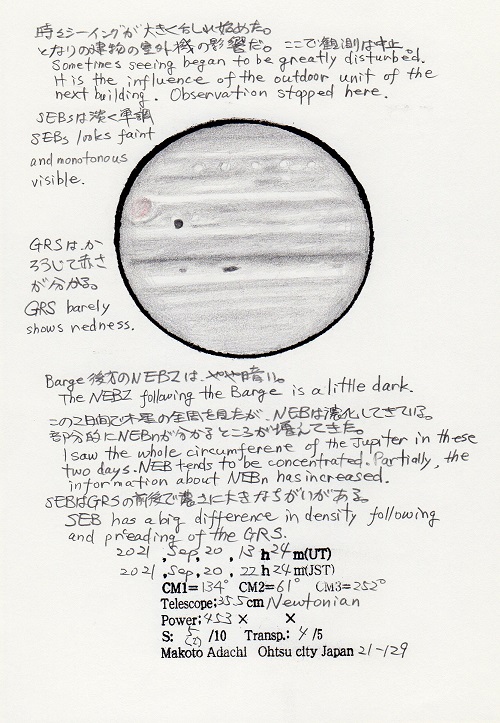 時々シーイングが大きくくずれ始めた。
となりの建物の室外機の影響だ。ここで観測は中止。
Sometimes seeing began to be greatly disturbed.
It is the influence of the outdoor unit of the
next building. Observation stopped here.
SEBsは淡く単調
SEBs looks faint
and monotonous
visible.
GRSは、か
ろうじて赤さ
が分かる。
GRS barely
shows redness.
Barge後方のNEBZは、やや暗い。
The NEBZ following the Barge is a little dark.
この2日間で木星の全周を見たが、NEBは濃化してきている。
部分的にNEBnが分かるところが増えてきた。
I saw the whole circumferene of the Jupiter in these
two days. NEB tends to be concentrated. Partially, the
information about NEBn has increased.
SEBはGRSの前後で濃さに大きなちがいがある。
SEB has a big difference in density following
and preading of the GRS.
2021, Sep, 20, 13 h 24 m(UT)
2021, Sep, 20, 22 h 24 m(JST)
CM1= 134° CM2= 61° CM3= 252°
Telescope; 35.5 cm Newtonian
Power; 453 × ×
S: 5 /10 Transp.: 4 /5
(2)
Makoto Adachi Ohtsu city Japan 21-129